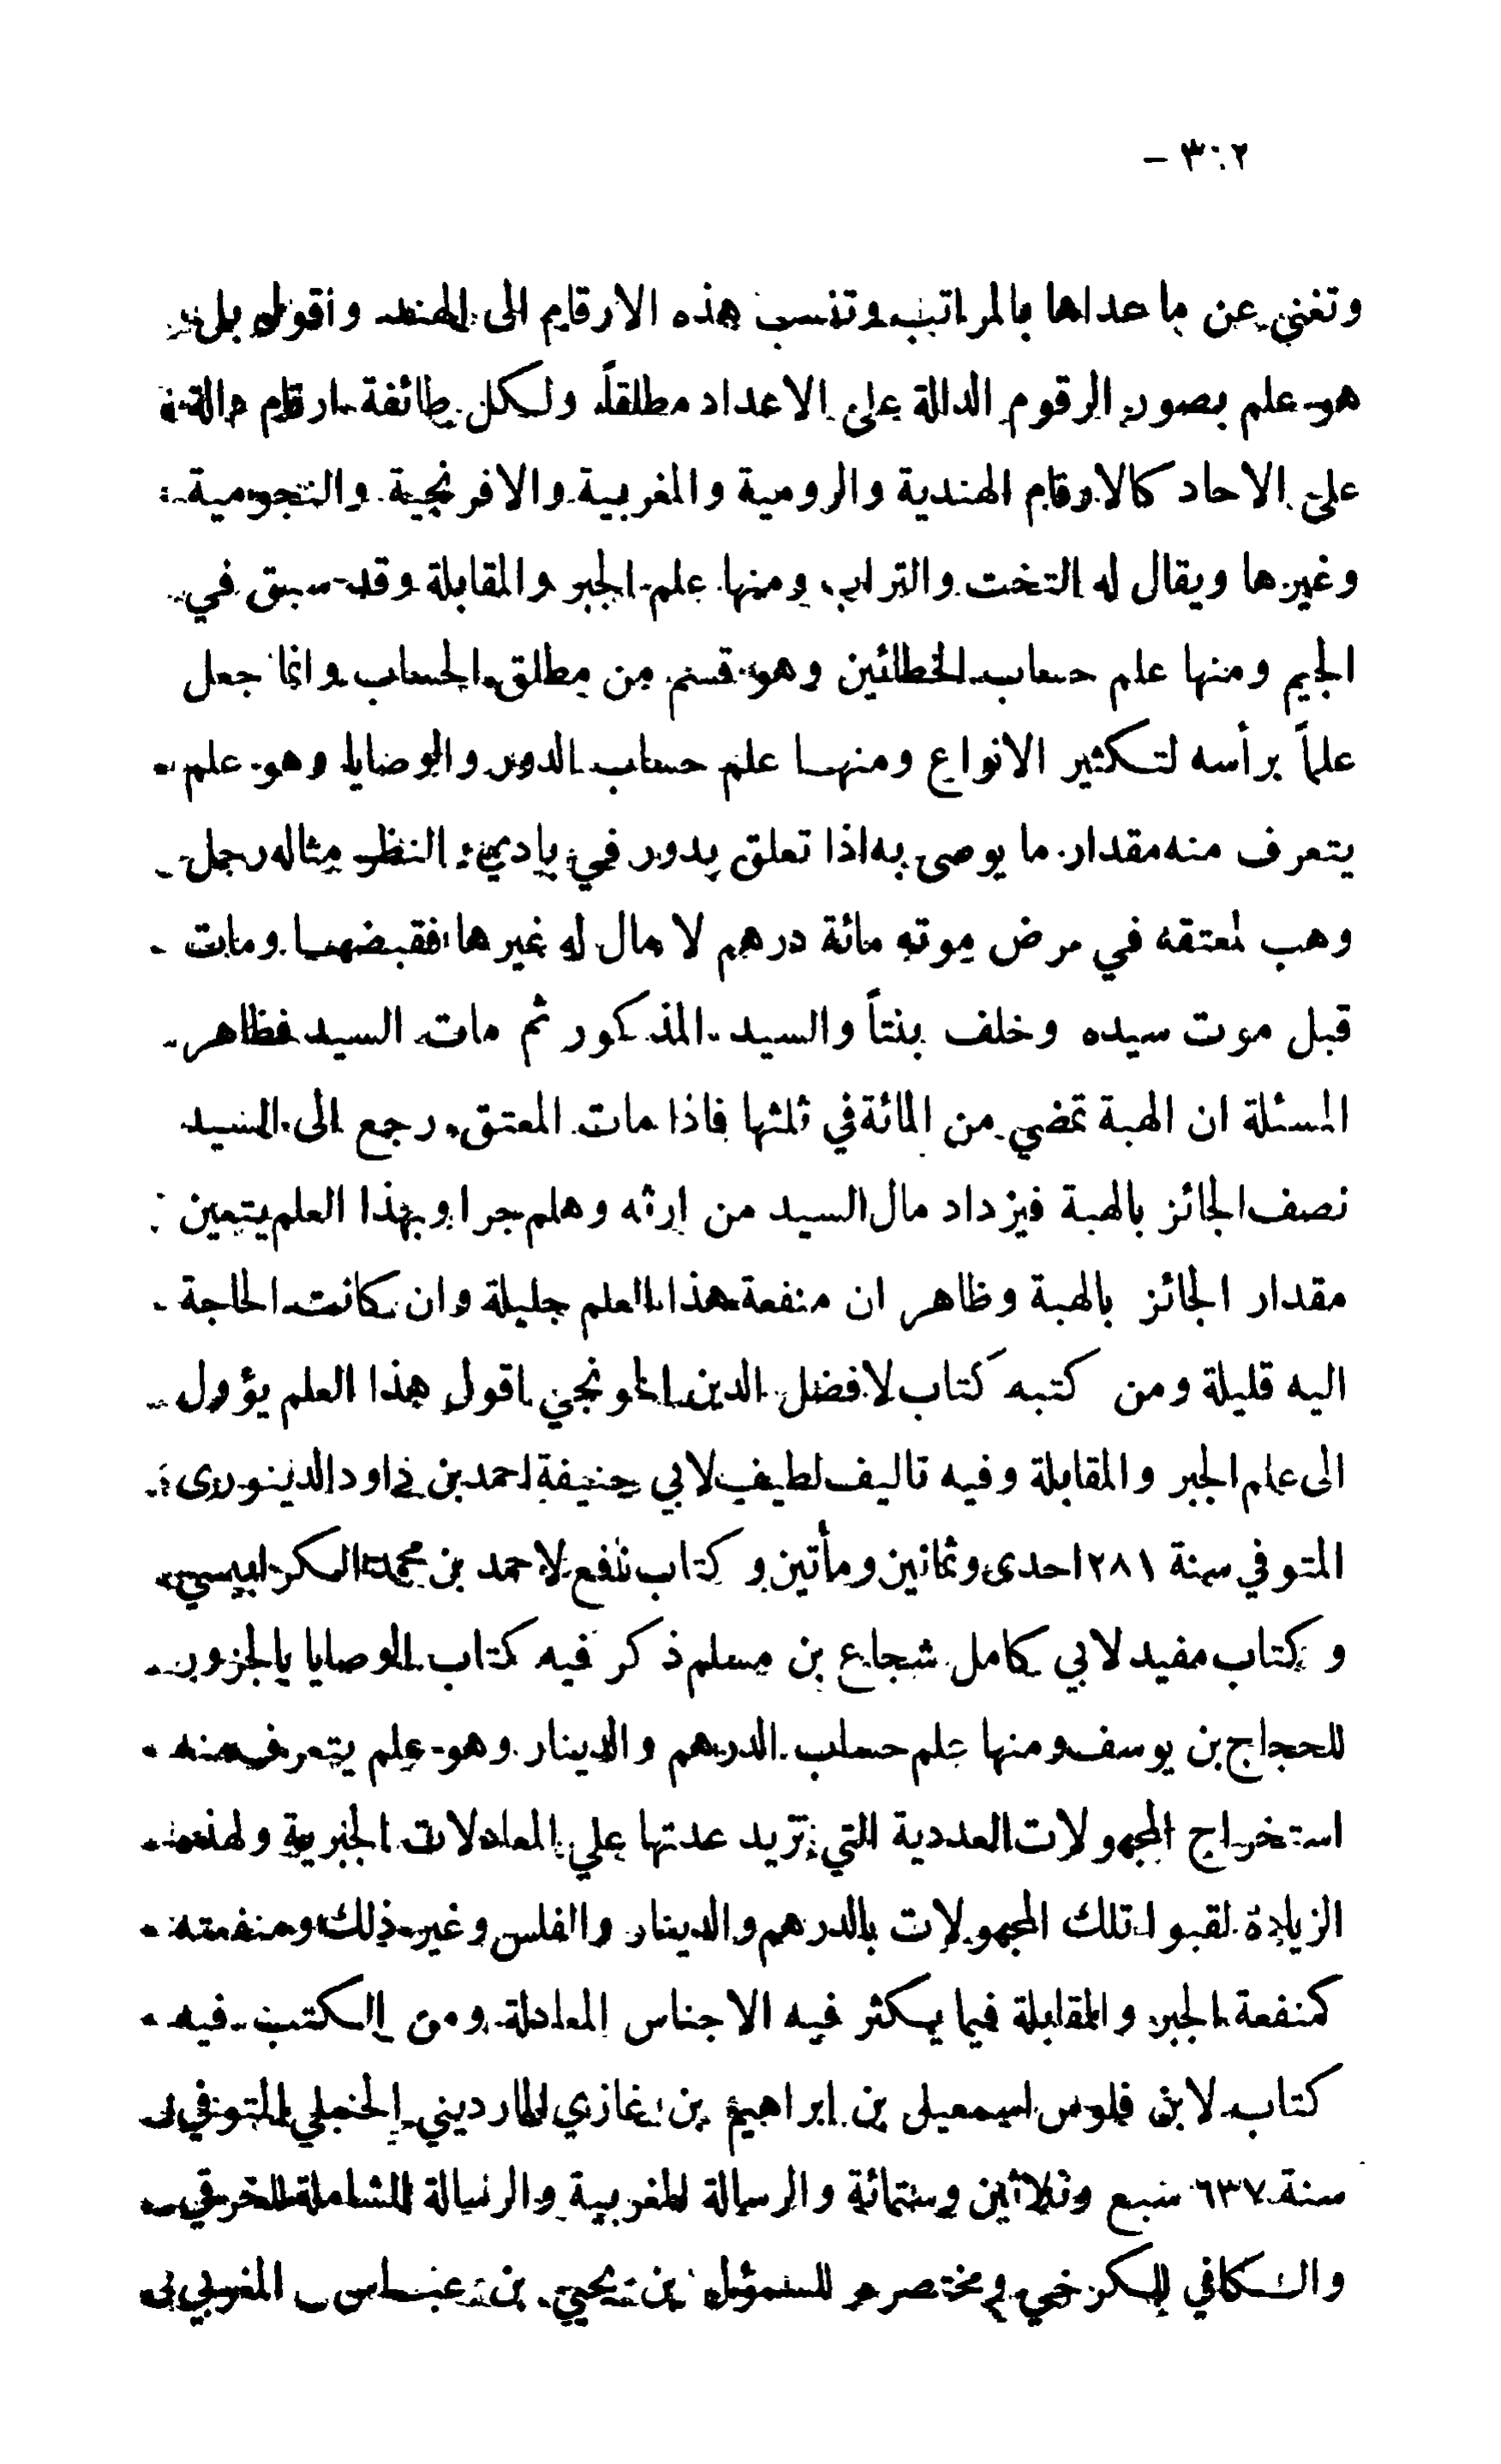 ٣٠٢ –
وتغني عن ما عداها بالمراتب وتنسب هذه الارقام الى الهند واقول بل
هو علم بصور الرقوم الدالة على الاعداد مطلقاً ولكل طائفة ارقام دالة
على الاحاد كالارقام الهندية والرومية والمغربية والافرنجية والنجومية
وغيرها ويقال له التخت والتراب ومنها علم الجبر والمقابلة وقد سبق في
الجيم ومنها علم حساب الخطائين وهو قسم من مطلق الحساب وانما جعل
علماً برأسه لتكثير الانواع ومنها علم حساب الدور والوصايا وهو علم
يتعرف منه مقدار ما يوصى به اذا تعلق بدور في بادي النظر مثاله رجل
وهب لمعتقه في مرض موته مائة درهم لا مال له غيرها فقبضها ومات
قبل موت سيده وخلف بنتاً والسيد المذكور ثم مات السيد فظاهر
المسئلة ان الهبة تمضي من المائة في ثلثها فاذا مات المعتق رجع الى السيد
نصف الجائز بالهبة فيزداد مال السيد من ارثه وهلم جرا وبهذا العلم يتعين
مقدار الجائز بالهبة وظاهر ان منفعة هذا العلم جليلة وان كانت الحاجة
اليه قليلة ومن كتبه كتاب لافضل الدين الخونجي اقول هذا العلم يؤول
الى علم الجبر والمقابلة وفيه تاليف لطيف لابي حنيفة احمد بن داود الدينوري
المتوفي سنة ٢٨١ احدى وثمانين ومأتين وكتاب نافع لاحمد بن محمد الكرابيسي
وكتاب مفيد لابي كامل شجاع بن مسلم ذكر فيه كتاب الوصايا بالجزور
للحجاج بن يوسف ومنها علم حساب الدرهم والدينار وهو علم يتعرف منه
استخراج المجهولات العددية التي تزيد عدتها على المعادلات الجبرية ولهذه
الزيادة لقبوا تلك المجهولات بالدرهم والدينار والفلس وغير ذلك ومنفعته
كمنفعة الجبر والمقابلة فيما يكثر فيه الاجناس المعادلة ومن الكتب فيه
كتاب لابن فلوس اسمعيل بن ابراهيم بن غازي المارديني الحنبلي المتوفي
سنة ٦٣٧ سبع وثلاثين وستمائة والرسالة المغربية والرسالة الشاملة للخرقي
والكافي للكرخي ومختصره للسمؤل بن يحيى بن عباس المغربي